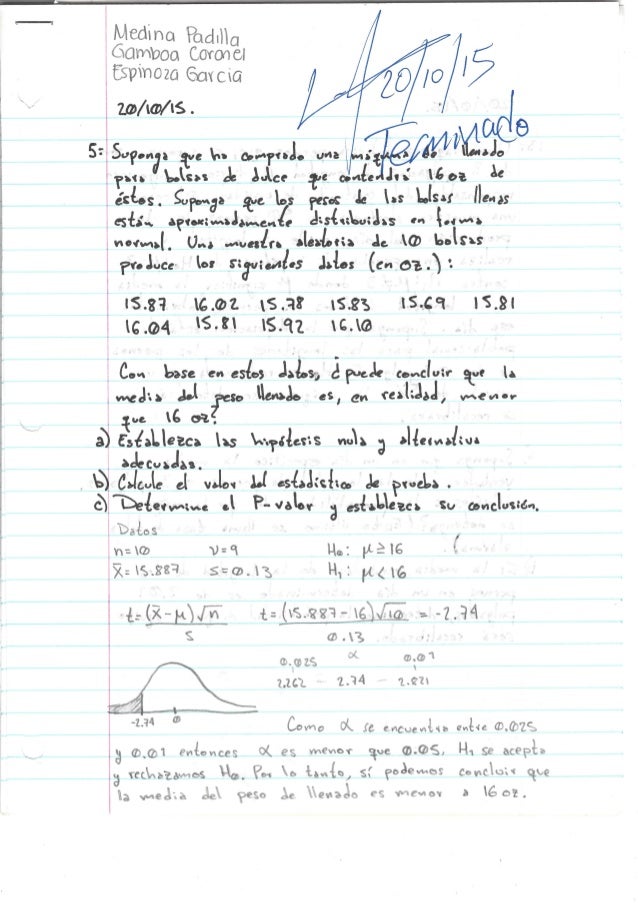 Medina Padilla
Gamboa Coronel
Espinoza Garcia
20/10/15
Terminado
20/10/15.
5= Suponga que ha comprado una máquina de llenado
para bolsas de dulce que contendrá 16 oz de
éstos. Suponga que los pesos de las bolsas llenas
están aproximadamente distribuidas en forma
normal. Una muestra aleatoria de 10 bolsas
produce los siguientes datos (en oz.):
15.87 16.02 15.78 15.83 15.69 15.81
16.04 15.81 15.92 16.10
Con base en estos datos, ¿puede concluir que la
media del peso llenado es, en realidad, menor
que 16 oz?
a) Establezca las hipótesis nula y alternativa
adecuadas.
b) Calcule el valor del estadístico de prueba.
c) Determine el P-valor y establezca su conclusión.
Datos
n=10 ν=9 H₀: μ≥16
X̄=15.887 s=0.13 H₁: μ<16
t=(X̄-μ)√n t=(15.887-16)√10 = -2.74
s 0.13
0.025 α 0.01
2.262 - 2.74 - 2.821
-2.74 0
Como α se encuentra entre 0.025
y 0.01 entonces α es menor que 0.05. H₁ se acepta
y rechazamos H₀. Por lo tanto, sí podemos concluir que
la media del peso de llenado es menor a 16 oz.